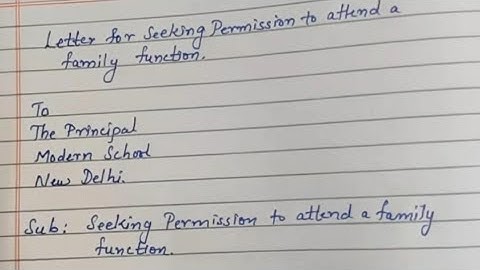 Letter for Seeking Permission to attend a
family function.
To
The Principal
Modern School
New Delhi.
Sub: Seeking Permission to attend a family
function.